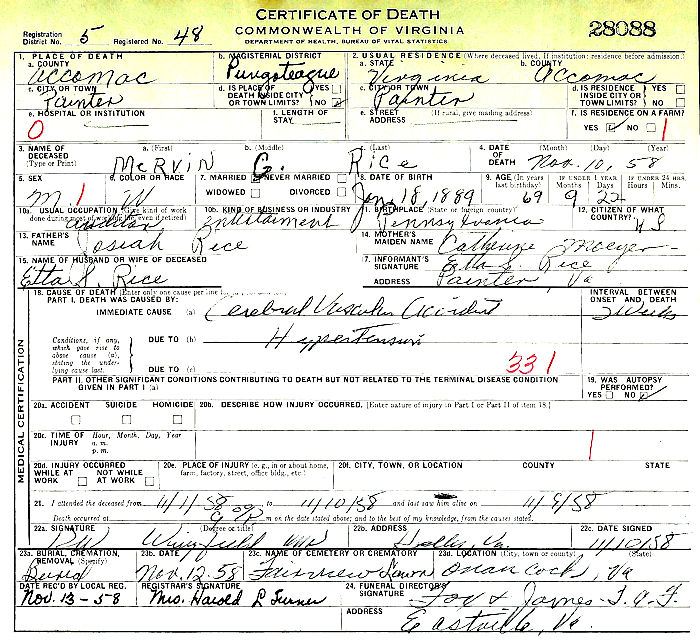 CERTIFICATE OF DEATH
COMMONWEALTH OF VIRGINIA
DEPARTMENT OF HEALTH, BUREAU OF VITAL STATISTICS
28088
Registration District No. 5 Registered No. 48
1. PLACE OF DEATH
a. COUNTY
Accomac
b. MAGISTERIAL DISTRICT
Pungoteague
2. USUAL RESIDENCE (Where deceased lived. If institution: residence before admission)
a. STATE
Virginia
b. COUNTY
Accomac
c. CITY OR TOWN
Painter
d. IS PLACE OF DEATH INSIDE CITY OR TOWN LIMITS? YES NO
c. CITY OR TOWN
Painter
d. IS RESIDENCE INSIDE CITY OR TOWN LIMITS? YES NO
e. HOSPITAL OR INSTITUTION
0
f. LENGTH OF STAY
e. STREET ADDRESS (If rural, give mailing address)
f. IS RESIDENCE ON A FARM?
YES NO 1
3. NAME OF DECEASED (Type or Print)
a. (First) b. (Middle) c. (Last)
MERVIN G. RICE
4. DATE OF DEATH (Month) (Day) (Year)
Nov. 10, 58
5. SEX
M 1
6. COLOR OR RACE
W
7. MARRIED NEVER MARRIED
WIDOWED DIVORCED
8. DATE OF BIRTH
Jan, 18, 1889
9. AGE (In years last birthday)
69
IF UNDER 1 YEAR Months Days
9 22
IF UNDER 24 HRS. Hours Mins.
10a. USUAL OCCUPATION (Give kind of work done during most of working life, even if retired)
10b. KIND OF BUSINESS OR INDUSTRY
11. BIRTHPLACE (State or foreign country)
Pennsylvania
12. CITIZEN OF WHAT COUNTRY?
US
13. FATHER'S NAME
Josiah Rice
14. MOTHER'S MAIDEN NAME
Catherine
15. NAME OF HUSBAND OR WIFE OF DECEASED
Etta S. Rice
17. INFORMANT'S SIGNATURE Etta S. Rice
ADDRESS Painter Va
18. CAUSE OF DEATH (Enter only one cause per line
PART I. DEATH WAS CAUSED BY:
IMMEDIATE CAUSE (a) Cerebral Vascular Accident
INTERVAL BETWEEN ONSET AND DEATH
2 Weeks
Conditions, if any, which gave rise to above cause (a), stating the underlying cause last.
DUE TO (b) Hypertension
DUE TO (c)
331
PART II. OTHER SIGNIFICANT CONDITIONS CONTRIBUTING TO DEATH BUT NOT RELATED TO THE TERMINAL DISEASE CONDITION GIVEN IN PART I (a)
19. WAS AUTOPSY PERFORMED?
YES NO
MEDICAL CERTIFICATION
20a. ACCIDENT SUICIDE HOMICIDE
20b. DESCRIBE HOW INJURY OCCURRED. (Enter nature of injury in Part I or Part II of item 18.)
20c. TIME OF INJURY Hour, Month, Day, Year
a. m.
p. m.
1
20d. INJURY OCCURRED
WHILE AT WORK NOT WHILE AT WORK
20e. PLACE OF INJURY (e. g., in or about home, farm, factory, street, office bldg., etc.)
20f. CITY, TOWN, OR LOCATION COUNTY STATE
21. I attended the deceased from 11/1/58 to 11/10/58 and last saw him alive on 11/9/58
Death occurred at m on the date stated above; and to the best of my knowledge, from the causes stated.
22a. SIGNATURE (Degree or title)
22b. ADDRESS
22c. DATE SIGNED
11/10/58
23a. BURIAL, CREMATION, REMOVAL (Specify)
Burial
23b. DATE
Nov, 12, 58
23c. NAME OF CEMETERY OR CREMATORY
Fairview Lawn
23d. LOCATION (City, town or county) (State)
Onancock, Va
DATE REC'D BY LOCAL REG.
Nov. 13-58
REGISTRAR'S SIGNATURE
Mrs. Harold L Turner
24. FUNERAL DIRECTOR'S SIGNATURE
Fox & James
ADDRESS
Eastville, Va.